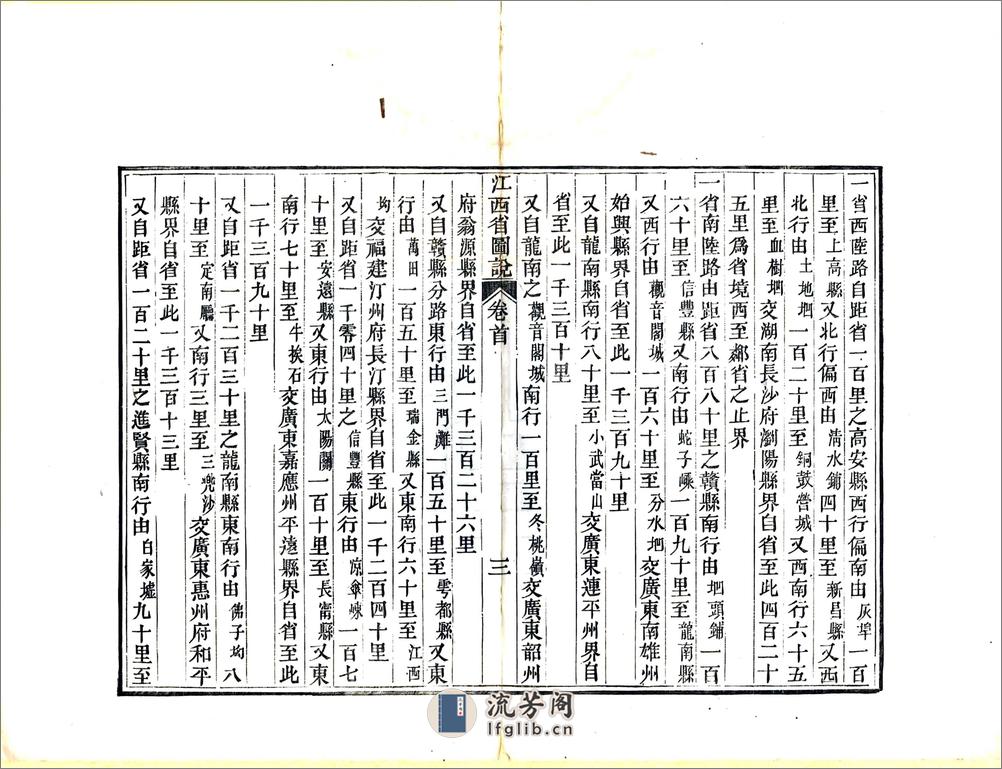 一省西陸路自距省一百里之高安縣西行偏南由灰埠一百
里至上高縣又北行偏西由清水鋪四十里至新昌縣又西
北行由土地坳一百二十里至銅鼓營城又西南行六十五
里至血樹坳交湖南長沙府瀏陽縣界自省至此四百二十
五里爲省境西至鄰省之止界
一省南陸路由距省八百八十里之贛縣南行由坳頭鋪一百
六十里至信豐縣又南行由蛇子嵊一百九十里至龍南縣
又西行由觀音閣城一百六十里至分水坳交廣東南雄州
始興縣界自省至此一千三百九十里
又自龍南縣南行八十里至小武當山交廣東連平州界自
省至此一千三百十里
又自龍南之觀音閣城南行一百里至冬桃嶺交廣東韶州
江西省圖說 卷首 三
府翁源縣界自省至此一千三百二十六里
又自贛縣分路東行由三門灘一百五十里至雩都縣又東
行由萬田一百五十里至瑞金縣又東南行六十里至江西
均交福建汀州府長汀縣界自省至此一千二百四十里
又自距省一千零四十里之信豐縣東行由涼傘崠一百七
十里至安遠縣又東行由太陽關一百十里至長甯縣又東
南行七十里至牛挨石交廣東嘉應州平遠縣界自省至此
一千三百九十里
又自距省一千二百三十里之龍南縣東南行由佛子均八
十里至定南廳又南行三里至三兜沙交廣東惠州府和平
縣界自省至此一千三百十三里
又自距省一百二十里之進賢縣南行由白家墟九十里至
流芳阁
lfglib.cn